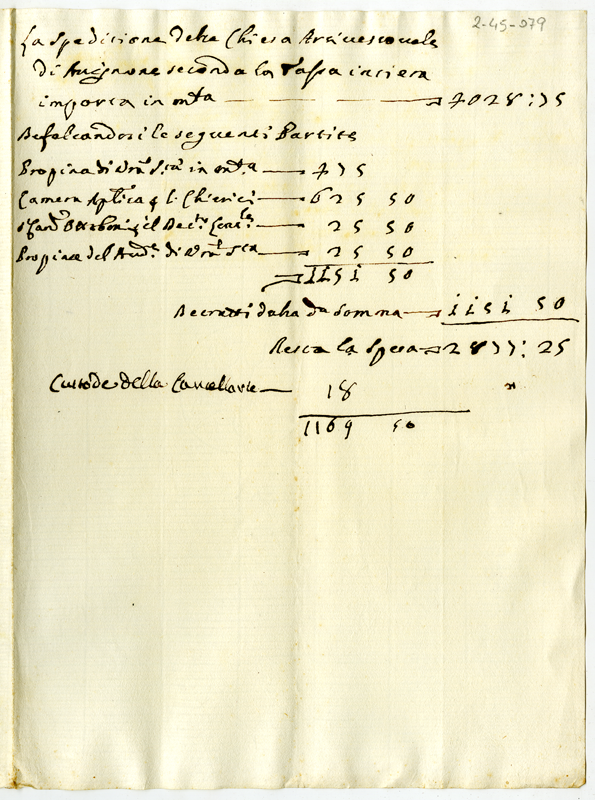 2-45-079
La Spedizione della Chiesa Arcivescovale
di Avignone secondo la Tassa intiera
importa in mta — 4028:75
Defalcandosi le seguenti Partite
Propina di Nro Sre in mta — 475
Camera Aplica li Chierici — 625 50
Card Otthoboni il — 25 50
Propina del Aud. di Nro Sre — 25 50
1151 50
da Somma — 1151 50
Resta la Spesa — 2877:25
Custode della Cancellaria — 18
1169 50